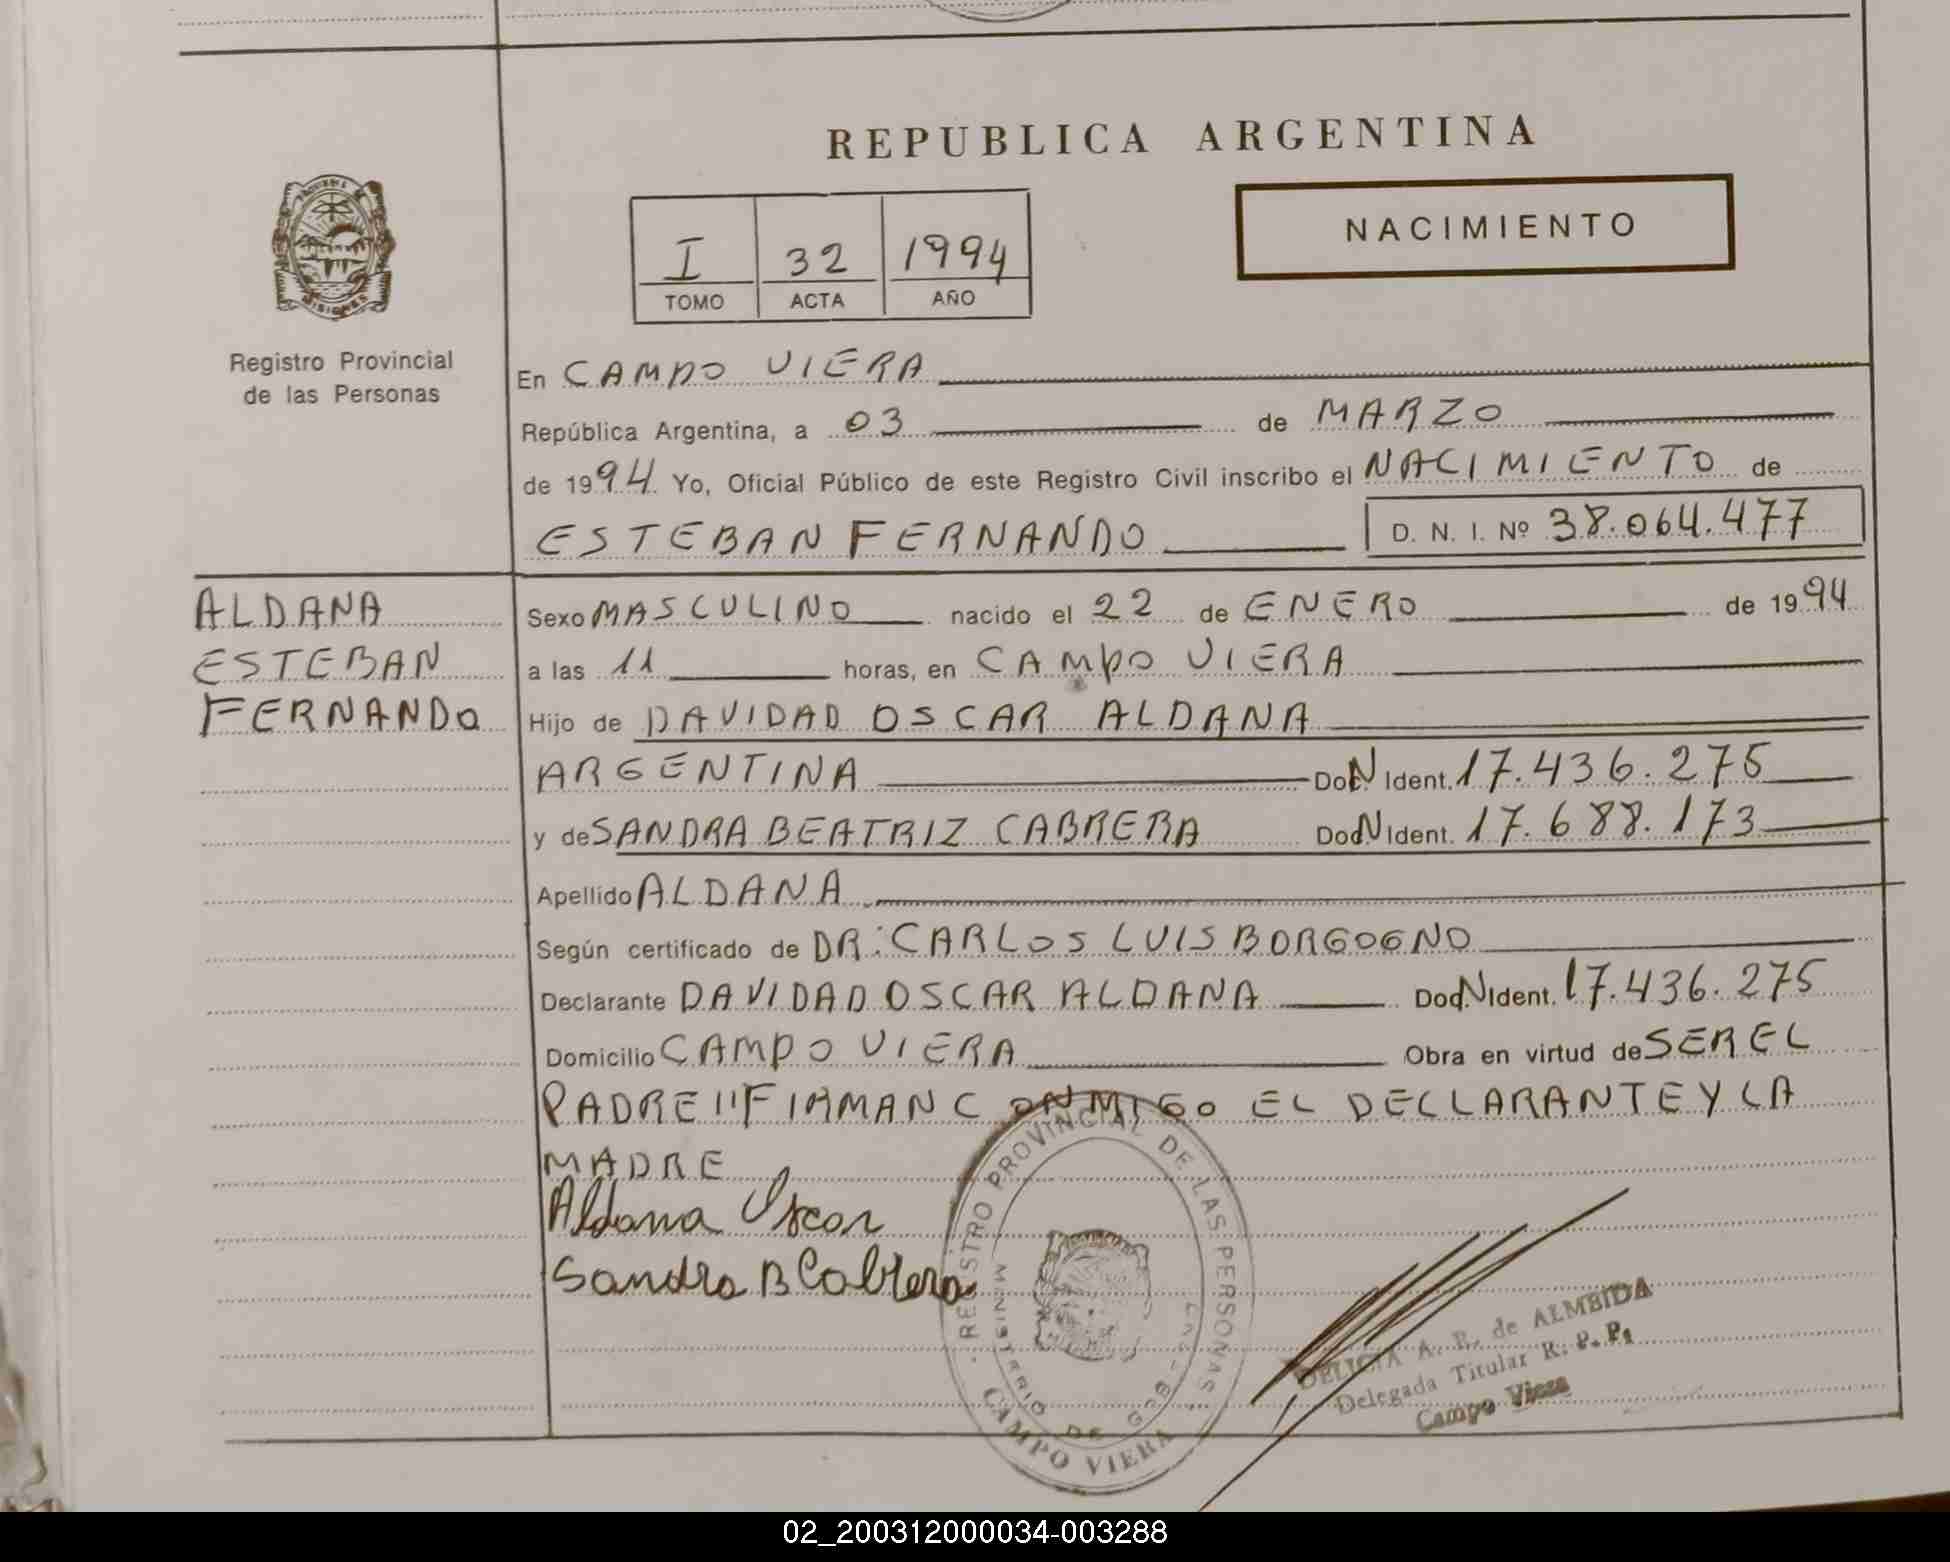 REPUBLICA ARGENTINA
NACIMIENTO
I 32 1994
TOMO ACTA AÑO
MISIONES
Registro Provincial
de las Personas
En CAMPO VIERA
República Argentina, a 03 de MARZO
de 1994 Yo, Oficial Público de este Registro Civil inscribo el NACIMIENTO de
ESTEBAN FERNANDO D. N. I. Nº 38.064.477
ALDANA
ESTEBAN
FERNANDO
Sexo MASCULINO nacido el 22 de ENERO de 1994
a las 11 horas, en CAMPO VIERA
Hijo de DAVIDAD OSCAR ALDANA
ARGENTINA Doc. N Ident. 17.436.275
y de SANDRA BEATRIZ CABRERA Doc. N Ident. 17.688.173
Apellido ALDANA
Según certificado de DR: CARLOS LUIS BORGOGNO
Declarante DAVIDAD OSCAR ALDANA Doc. N Ident. 17.436.275
Domicilio CAMPO VIERA Obra en virtud de SER EL
PADRE "FIRMAN CONMIGO EL DECLARANTE Y LA
MADRE
Aldana Oscar
Sandra B Cabrera
REGISTRO PROVINCIAL DE LAS PERSONAS
MINISTERIO DE GOB
CAMPO VIERA
DELICIA A. R. de ALMEIDA
Delegada Titular R. P. P.
Campo Viera
02_200312000034-003288